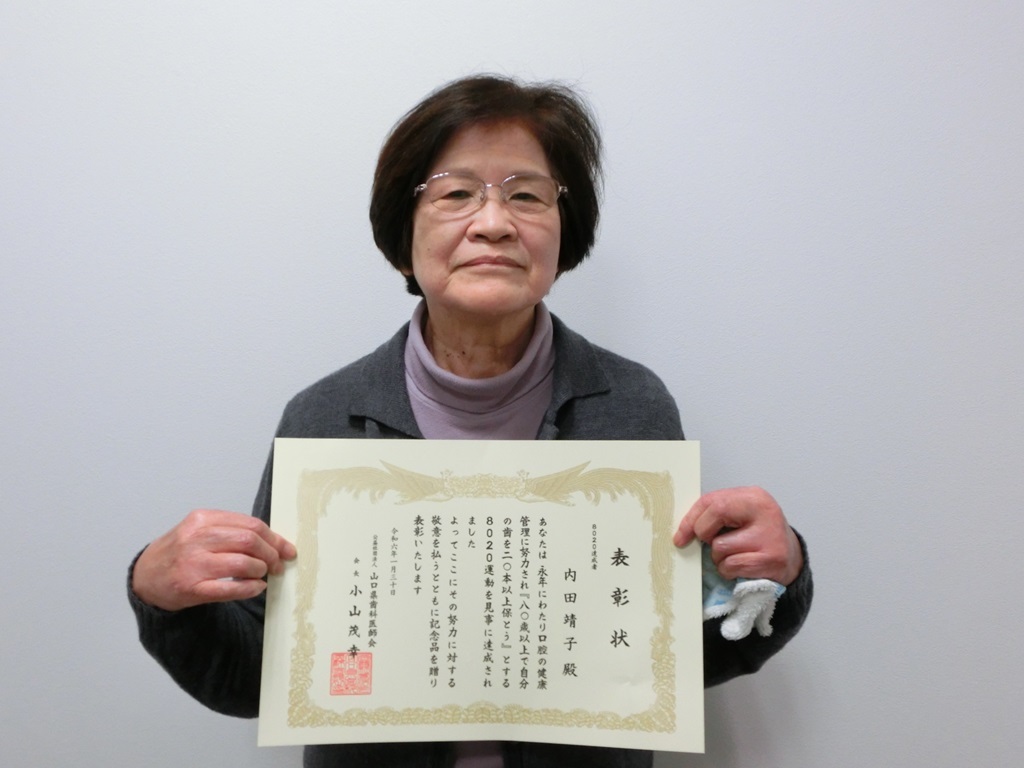 表彰状
8020達成者
内田靖子殿
あなたは永年にわたり口腔の健康
管理に努力され『八〇歳以上で自分
の歯を二〇本以上保とう』とする
8020運動を見事に達成され
ました
よってここにその努力に対する
敬意を払うとともに記念品を贈り
表彰いたします
令和六年一月三十日
公益社団法人 山口県歯科医師会
会長 小山茂幸